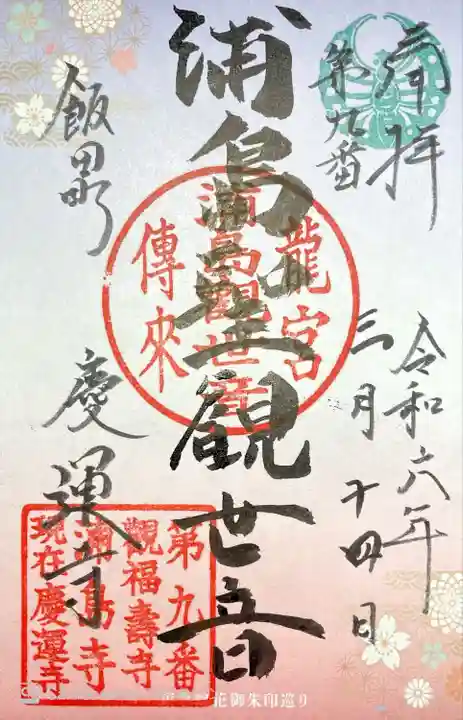 奉拝
第九番
令和六年
三月十四日
浦島聖観世音
龍宮
浦島観世音
傳来
飯田町
慶運寺
第九番
觀福壽寺
浦島寺
現在慶運寺
花御朱印巡り